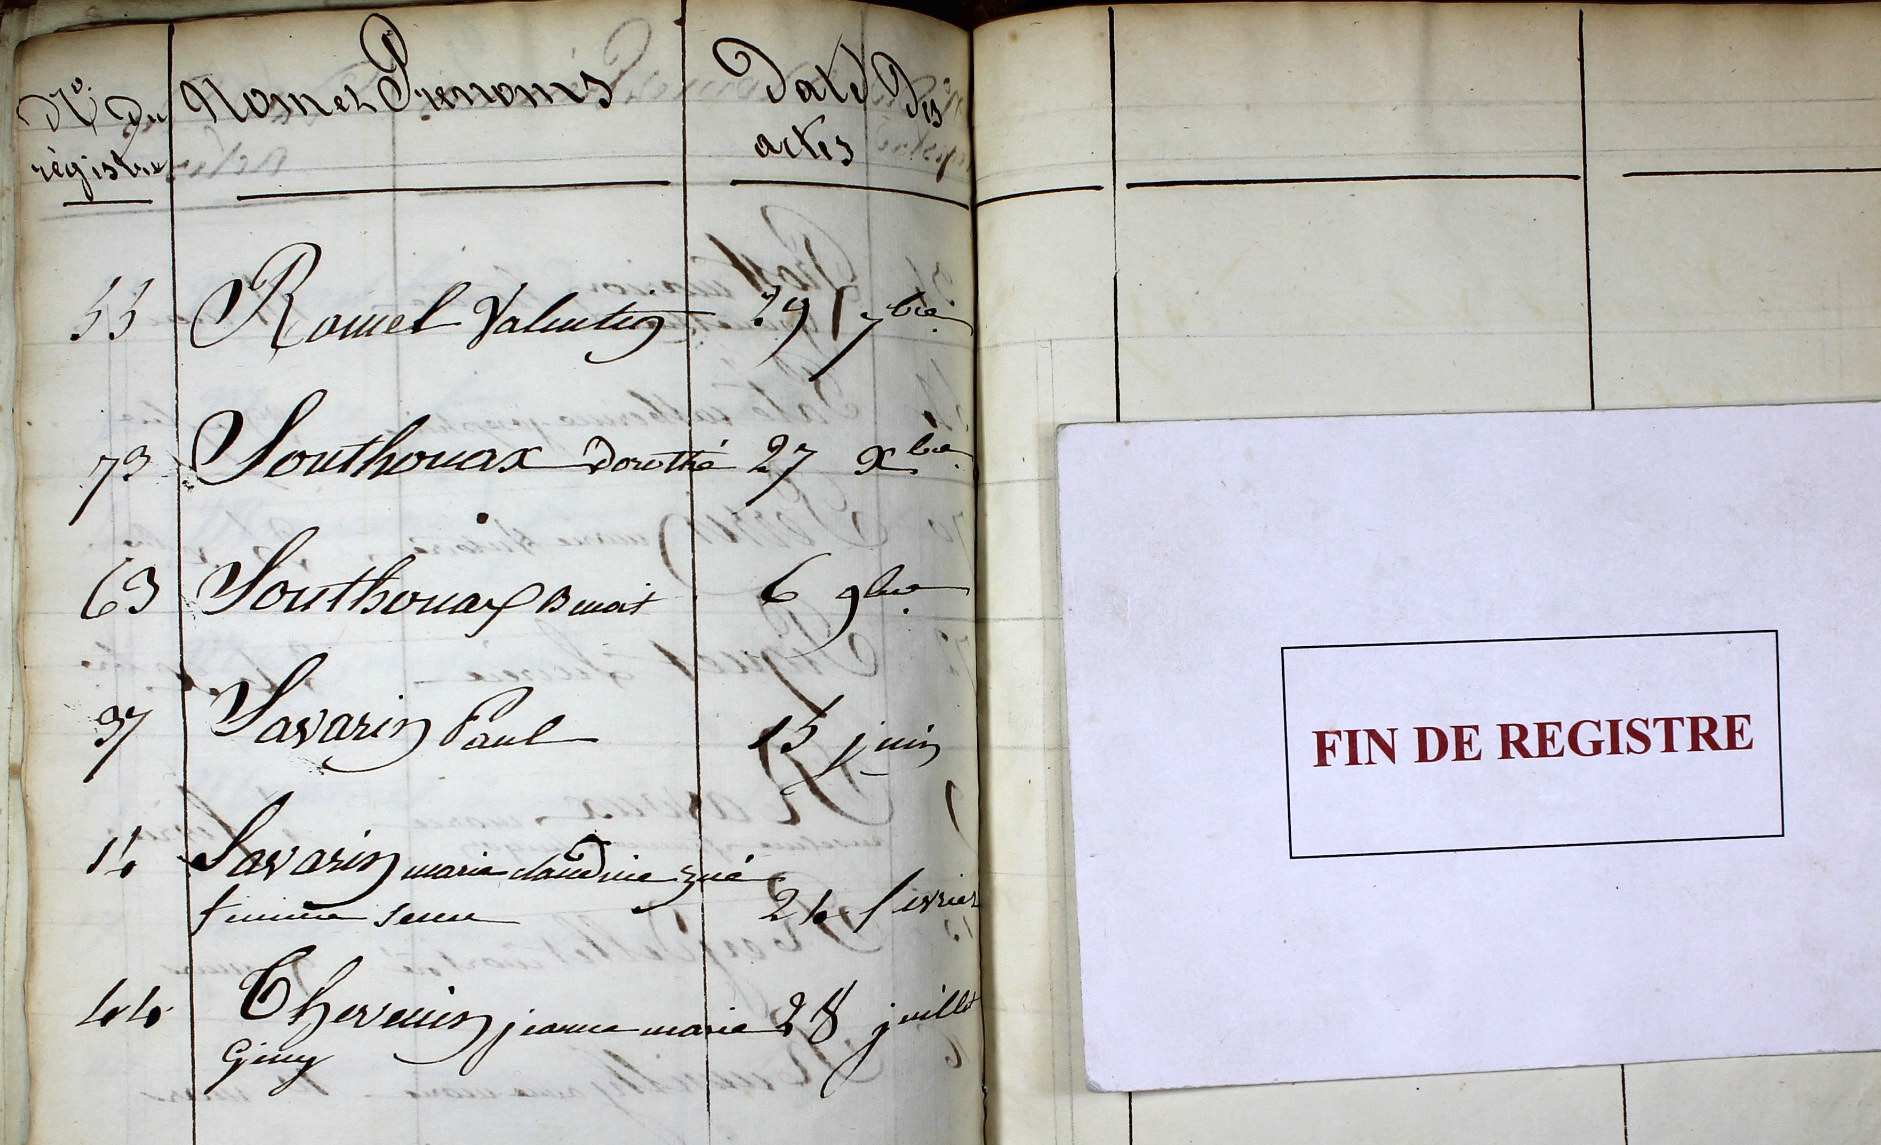 N° du Nom et Prenoms Date Des
régistre actes
55 Romel Valentin 29 7bre
73 Southonax Dorothé 27 Xbre
63 Southonax Benoit 6 9bre
37 Savarin Paul 15 juin
14 Savarin marie claudine
femme 24 fevrier
44 Thevenin jeanne marie 28 juillet
FIN DE REGISTRE